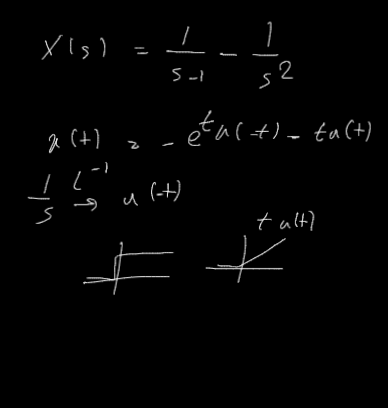 X(s) = 1/(s-1) - 1/s²
x(t) = -e^t u(-t) - tu(t)
1/s L⁻¹→ u(-t)
t u(t)